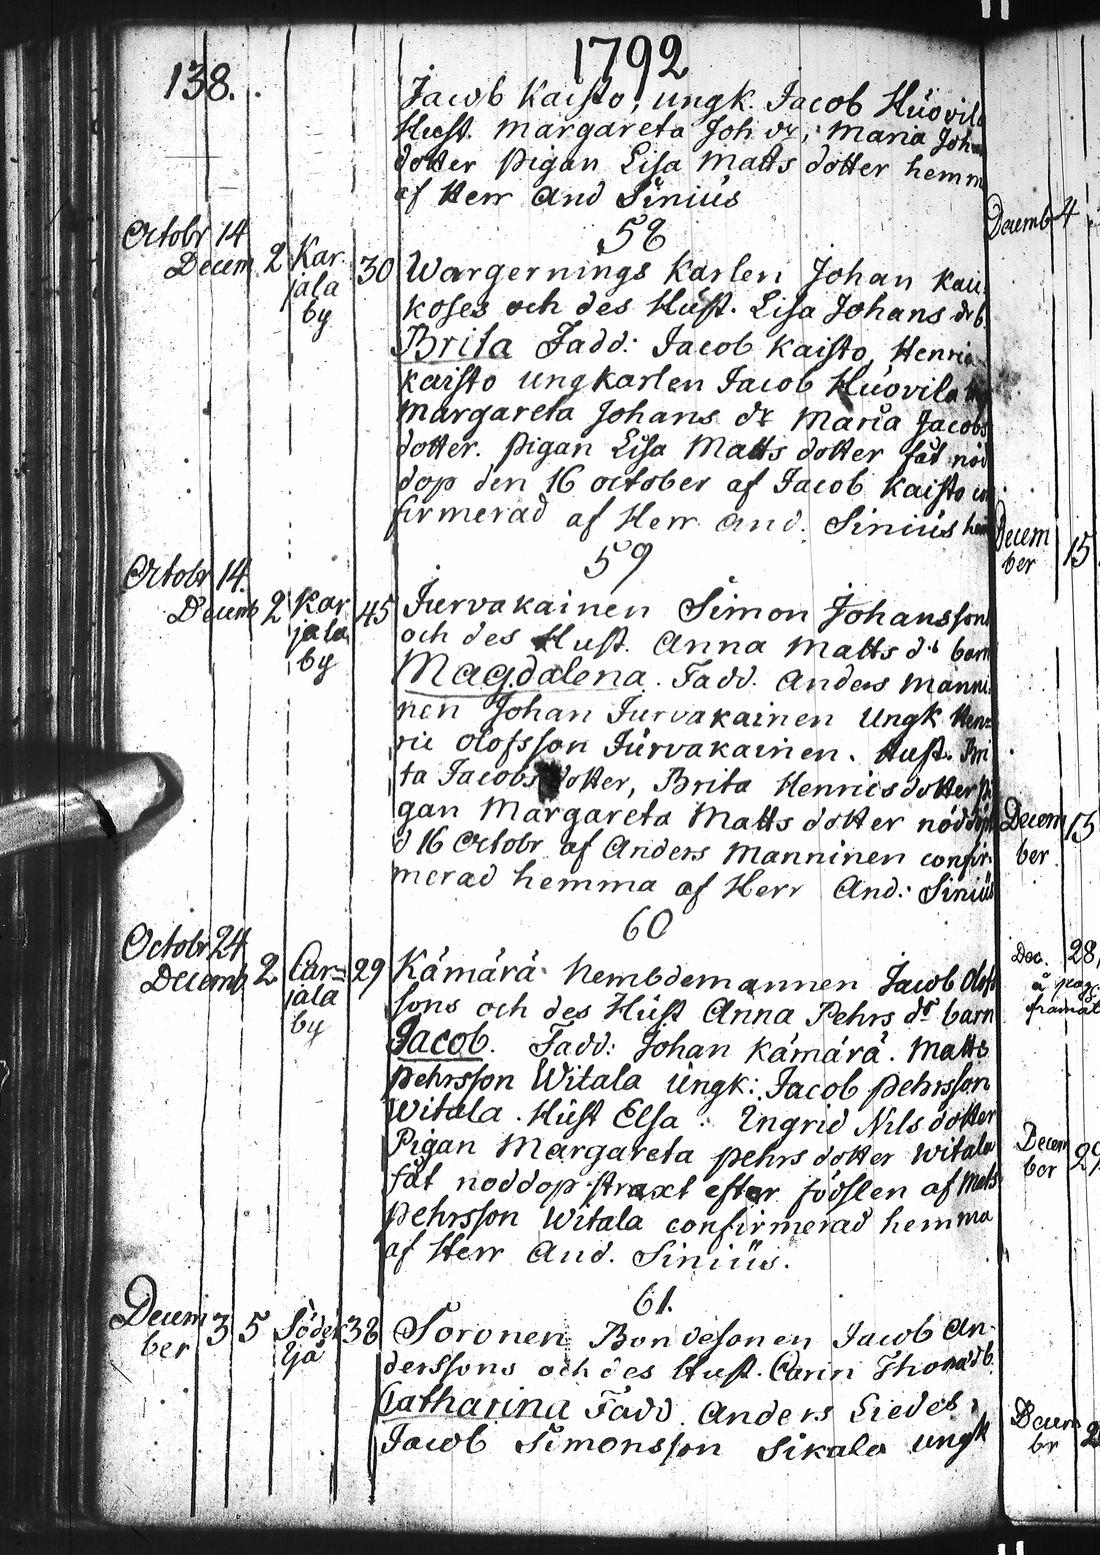 1792
138.
Jacob Kaisto, ungk. Jacob Huovila
Hust. Margareta Joh dr, Maria Joh
dotter pigan Lisa Matts dotter hemm
af Herr And Sinius
58
Octobr 14
Decem 2 Kar
jala
by
30 Wargernings Karlen Johan Kau
koses och des Hust. Lisa Johans dr b.
Brita Fadd: Jacob Kaisto, Henric
Kaisto ungkarlen Jacob Huovila
Margareta Johans dr Maria Jacobs
dotter. pigan Lisa Matts dotter fåt nöd
dop den 16 october af Jacob Kaisto con
firmerad af Herr And. Sinius hem
59
Octobr 14
Decemb 2 Kar
jala
by
45 Jurvakainen Simon Johansson
och des Hust. Anna Matts dr barn
Magdalena. Fadd. Anders Manni
nen Johan Jurvakainen Ungk Hen
ric Olofsson Jurvakainen. Hust. Bri
ta Jacobs dotter, Brita Henricsdotter pi
gan Margareta Matts dotter nöddöpt
d 16 Octobr af Anders Manninen confir
merad hemma af Herr And: Sinius
60
Octobr 24
Decemb 2 Car=
jala
by
29 Kämärä Nembdemannen Jacob Olofs
sons och des Hust Anna Pehrs dr barn
Jacob. Fadd: Johan Kämärä. Matts
Pehrsson Witala Ungk: Jacob Pehrsson
Witala. Hust Elsa. Ingrid Nils dotter
Pigan Margareta Pehrs dotter Witala
fåt noddop straxt efter födslen af Mats
Pehrsson Witala confirmerad hemma
af Herr And. Sinius.
61.
Decem
ber 3 5 Söder
jå
38 Soronen Bondesonen Jacob An
derssons och des Hust. Carin Thomæd b.
Catharina Fadd Anders Liedes,
Jacob Simonsson Sikala ungk
Decemb 4
Decem
ber 15
Decem
ber 15
Dec. 28,
å pag.
framåt
Decem
ber 29
Decem
br 2